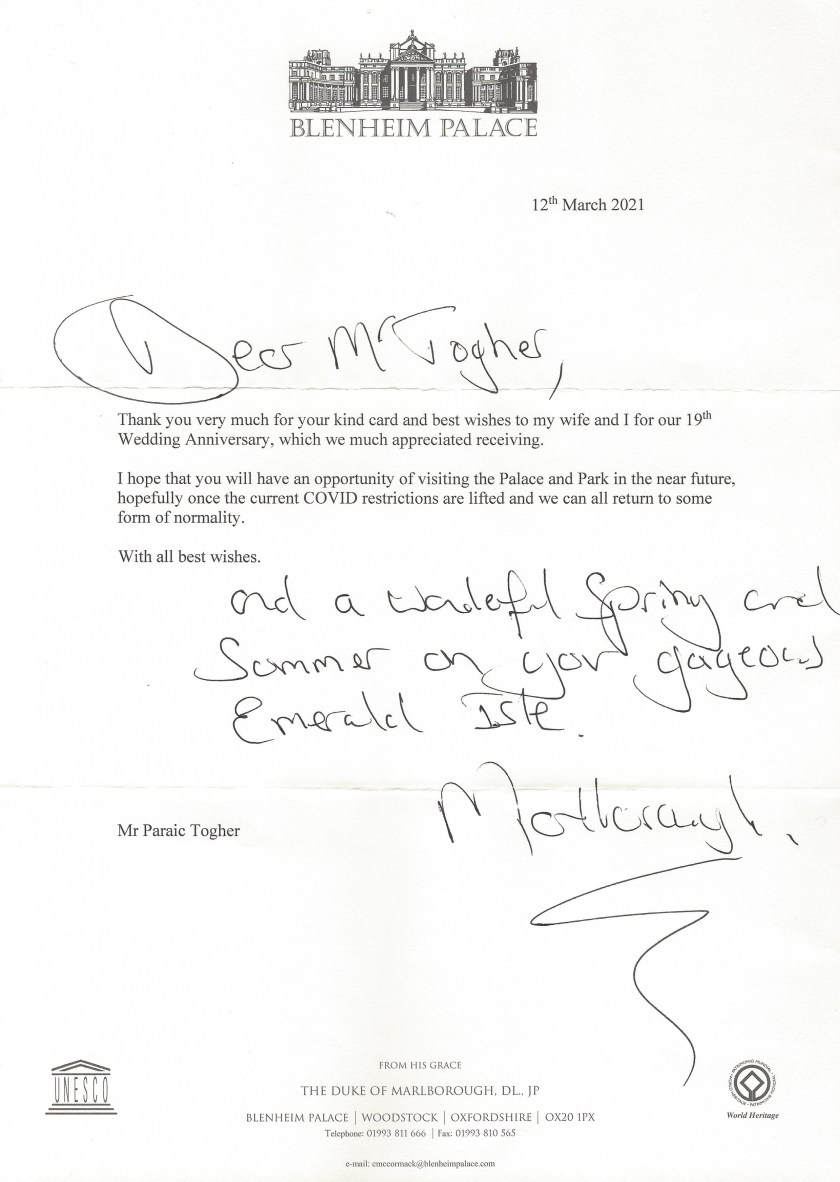 BLENHEIM PALACE
12th March 2021
Dear Mr Togher,
Thank you very much for your kind card and best wishes to my wife and I for our 19th
Wedding Anniversary, which we much appreciated receiving.
I hope that you will have an opportunity of visiting the Palace and Park in the near future,
hopefully once the current COVID restrictions are lifted and we can all return to some
form of normality.
With all best wishes.
and a wonderful Spring and
Summer on your gorgeous
Emerald Isle.
Marlborough.
Mr Paraic Togher
FROM HIS GRACE
THE DUKE OF MARLBOROUGH, DL., JP
BLENHEIM PALACE | WOODSTOCK | OXFORDSHIRE | OX20 1PX
Telephone: 01993 811 666 | Fax: 01993 810 565
e-mail: cmccormack@blenheimpalace.com
UNESCO
WORLD HERITAGE • PATRIMOINE MONDIAL • PATRIMONIO MUNDIAL
World Heritage